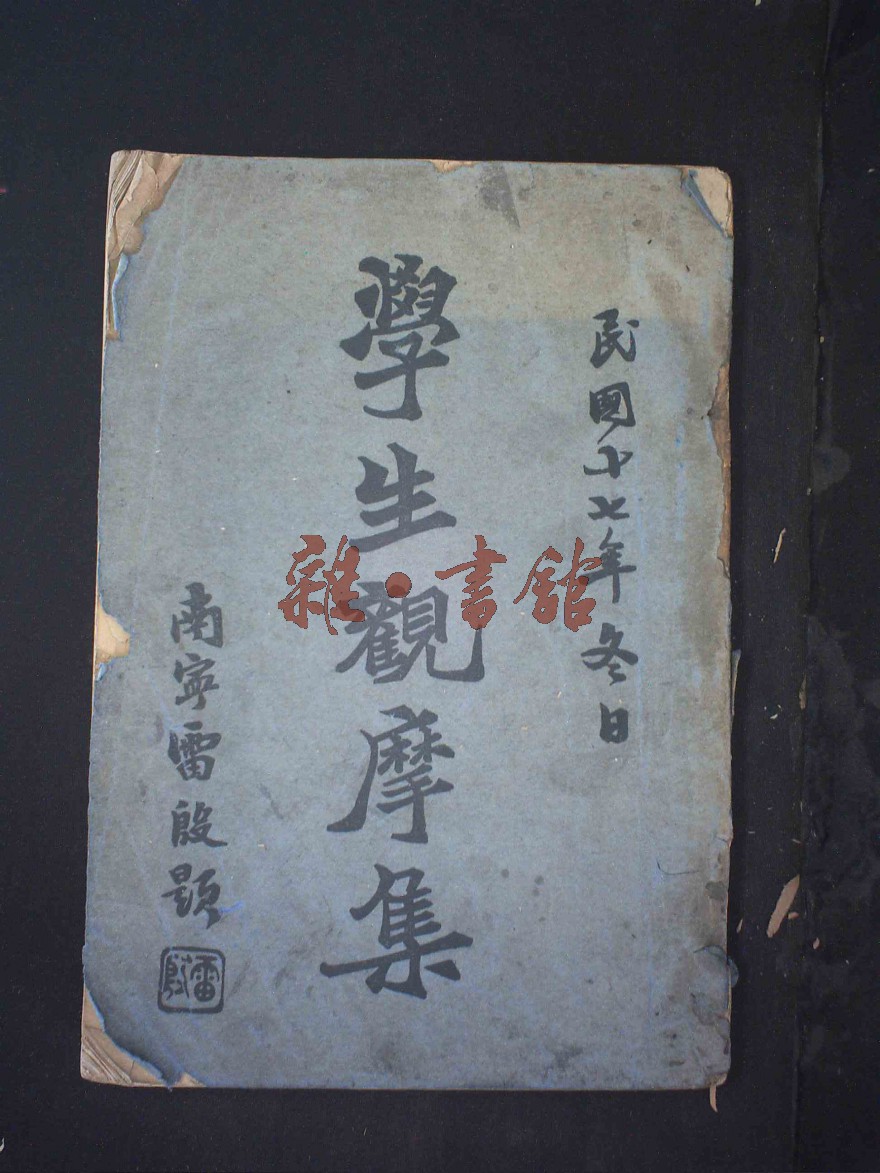 民國十七年冬日
學生觀摩集
南寧雷殷題
雷殷
雜·書館